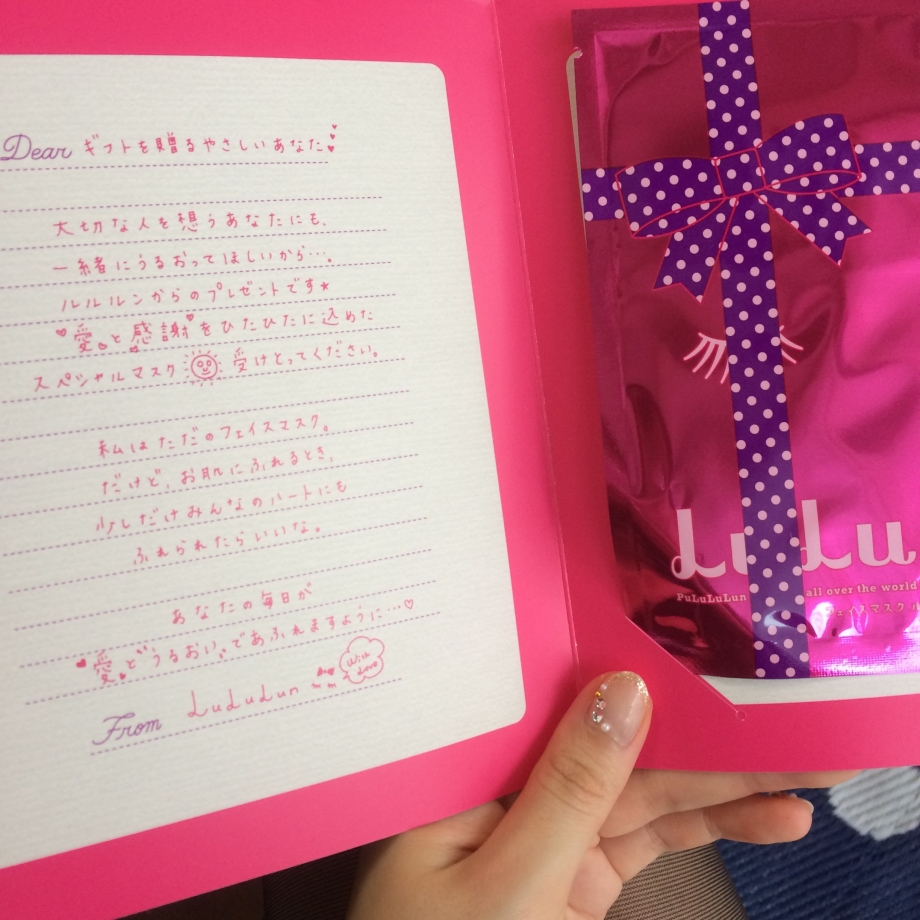 Dear ギフトを贈るやさしいあなた
大切な人を想うあなたにも、
一緒にうるおってほしいから…。
ルルルンからのプレゼントです★
♥愛と感謝♥をひたひたに込めた
スペシャルマスク 受けとってください。
私はただのフェイスマスク。
だけど、お肌にふれるとき、
少しだけみんなのハートにも
ふれられたらいいな。
あなたの毎日が
♥愛と"うるおい"であふれますように…♡
With Love
From LuLuLun
LuLu
PuLuLuLun all over the world
フェイスマスク ル